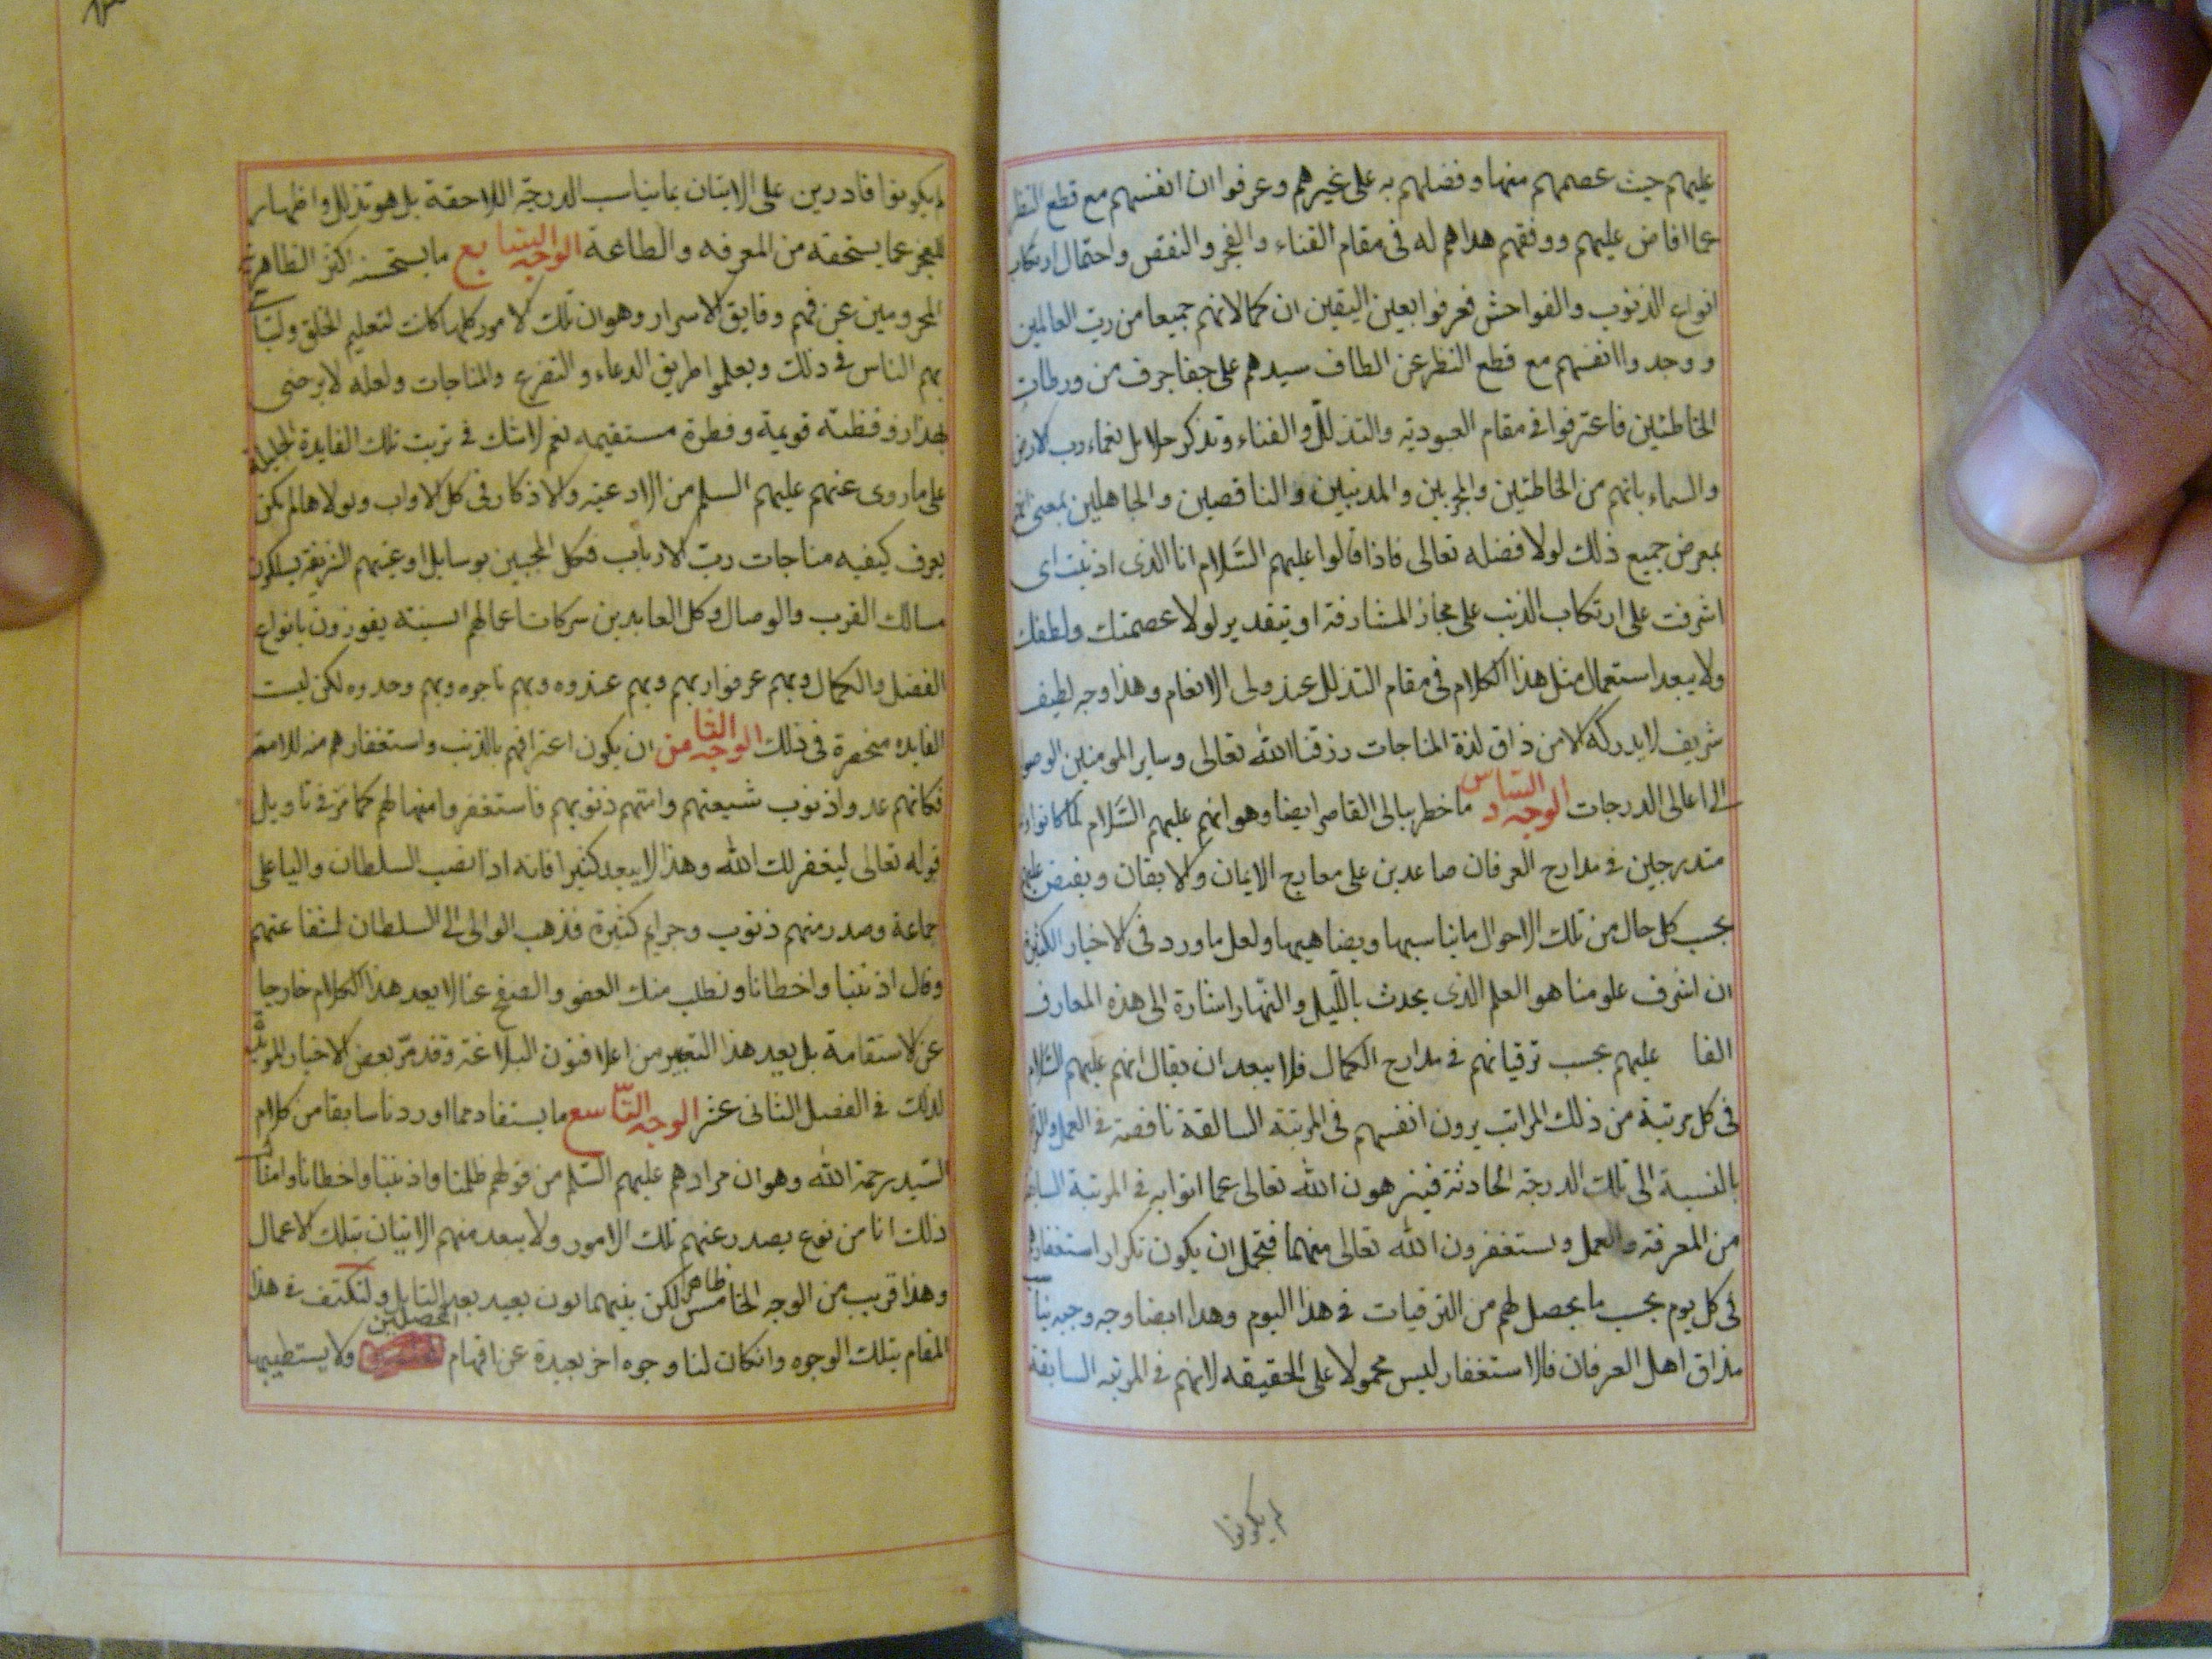 عليهم حيث عصمهم منها وفضلهم به على غيرهم وعرفوا ان انفسهم مع قطع النظر
عما افاض عليهم ووفقهم هداهم له في مقام الفناء والعجز والنقص واحتمال ارتكاب
انواع الذنوب والفواحش فعرفوا بعين اليقين ان كمالاتهم جميعا من رب العالمين
ووجدوا انفسهم مع قطع النظر عن الطاف سيدهم على جفا جرف من ورطات
الخاطئين فاعترفوا في مقام العبودية والتذلل والفناء وتذكر جلايل نعماء رب الارض
والسماء بانهم من الخاطئين والمجرمين والمذنبين والناقصين والجاهلين بمعنى انهم
بمعرض جميع ذلك لولا فضله تعالى فاذا قالوا عليهم السلام انا الذي اذنبت اى
اشرفت على ارتكاب الذنب على مجاز المشارفة او بتقدير لولا عصمتك ولطفك
ولا يبعد استعمال مثل هذا الكلام في مقام التذلل عند ولى الانعام وهذا وجه لطيف
شريف لا يدركه الا من ذاق لذة المناجات رزقنا الله تعالى وساير المومنين الوصول
الى اعالى الدرجات الوجه السادس ما خطر ببالى القاصر ايضا وهو انهم عليهم السلام لما كانوا
متدرجين في مدارج العرفان صاعدين على معارج الايمان والايقان ويفيض عليهم
بحسب كل حال من تلك الاحوال ما يناسبها ويضاهيها ولعل ما ورد في الاخبار الكثيرة
ان اشرف علومنا هو العلم الذي يحدث بالليل والنهار اشارة الى هذه المعارف
الفا عليهم بحسب ترقياتهم في مدارج الكمال فلا يبعد ان يقال انهم عليهم السلام
في كل مرتبة من ذلك المراتب يرون انفسهم في المرتبة السالفة ناقصة في العمل
بالنسبة الى تلك الدرجة الحادثة فينزهون الله تعالى عما اتوا به في المرتبة السابقة
من المعرفة والعمل واستغفرون الله تعالى منهما فيحتمل ان يكون تكرار استغفارهم
في كل يوم بحسب ما يحصل لهم من الترقيات في هذا اليوم وهذا ايضا وجه وجيه يناسب
مذاق اهل العرفان فالاستغفار ليس محمولا على الحقيقه لانهم في المرتبه السابقة
لم يكونوا
لم يكونوا قادرين على الاتيان بما يناسب الدرجة اللاحقة بل هو تذلل واظهار
للعجز عما يستحقه من المعرفه والطاعة الوجه السابع ما يستحسنه اكثر الظاهرية
المحرومين عن فهم دقايق الاسرار وهو ان تلك الامور كلها كانت لتعليم الخلق وليتأسى
بهم الناس في ذلك ويعلموا طريق الدعاء والتضرع والمناجات ولعله لا يرضى
بهذا ذو فطنة قويمة وفطرة مستقيمه نعم لا شك في ترتب تلك الفايدة الجليلة
على ما روى عنهم عليهم السلم من الادعية والاذكار في كل الاداب ولولاها لم يكن
يعرف كيفيه مناجات رب الارباب فكل المحبين بوسايل ادعيتهم الشريفة يسلكون
مسالك القرب والوصال وكل العابدين ببركات اعمالهم السنية يفوزون بانواع
الفضل والكمال وبهم عرفوا ربهم وبهم عبدوه وبهم ناجوه وبهم وحدوه لكن ليست
الفايده منحصرة في ذلك الوجه الثامن ان يكون اعترافهم بالذنب واستغفارهم منه للامة
فكانهم عدوا ذنوب شيعتهم وامتهم ذنوبهم فاستغفروا منها لهم كما مر في تاويل
قوله تعالى ليغفر لك الله وهذا لا يبعد كثيرا فانه اذا نصب السلطان واليا على
جماعة وصدر منهم ذنوب وجرايم كثيرة فذهب الوالى الى السلطان لشفاعتهم
وقال اذنبنا واخطانا ونطلب منك العفو والصفح عنا لا يعد هذا الكلام خارجا
عن الاستقامة بل يعد هذا التعبير من اعلا فنون البلاغة وقد مر بعض الاخبار المويدة
لذلك في الفصل الثانى عشر الوجه التاسع ما يستفاد مما اوردنا سابقا من كلام
السيد رحمة الله وهو ان مرادهم عليهم السلم من قولهم ظلمنا واذنبنا واخطانا وامثال
ذلك انا من نوع يصدر عنهم تلك الامور ولا يبعد منهم الاتيان بتلك الاعمال
وهذا قريب من الوجه الخامس ظاهرا لكن بينهما بون بعيد بعد التامل ولنكتف في هذا
المقام بتلك الوجوه وان كان لنا وجوه اخر بعيدة عن افهام المحصلين ولا يستطيبها